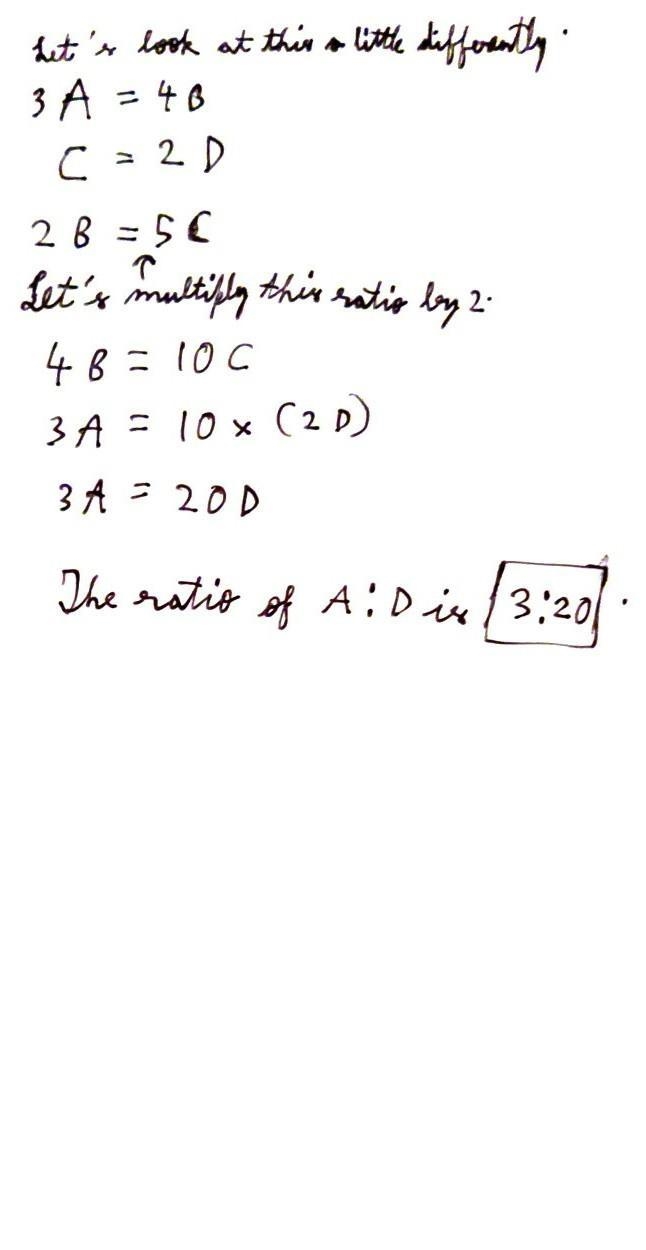 Let's look at this a little differently.
3A = 4B
C = 2D
2B = 5C
↑
Let's multiply this ratio by 2.
4B = 10C
3A = 10 × (2D)
3A = 20D
The ratio of A:D is 3:20.